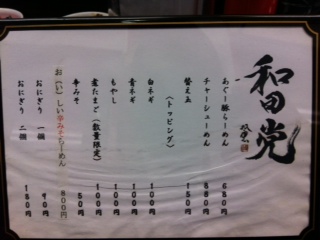 和田党
あぐー豚らーめん 680
チャーシューめん 880
替え玉 150
(トッピング)
白ネギ 100
青ネギ 100
もやし 100
煮たまご(数量限定) 100
辛みそ 50
お〔い〕しい辛みそらーめん 800
おにぎり 一個 90
おにぎり 二個 180円